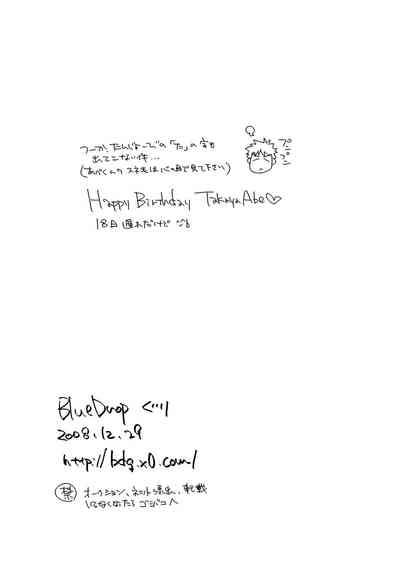 つーか、たんじょーびの「た」の字も
出てこない件…
(あべくんの スネ毛は心の目で見て下さい)
プンプン
Happy Birthday TakayaAbe♡
18日遅れだけど
BlueDrop ぐり
2008.12.29
http://bdg.x0.com/
禁 オークション、ネット流出、転載